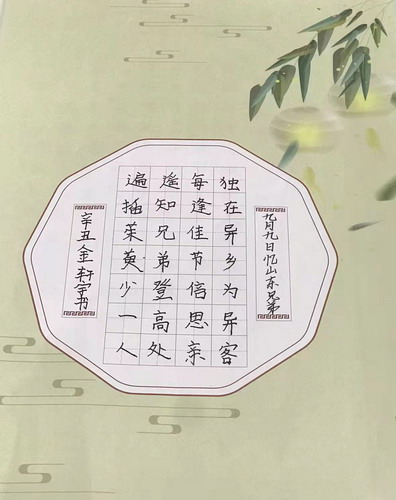 九月九日忆山东兄弟
独在异乡为异客
每逢佳节倍思亲
遥知兄弟登高处
遍插茱萸少一人
辛丑金轩宇书